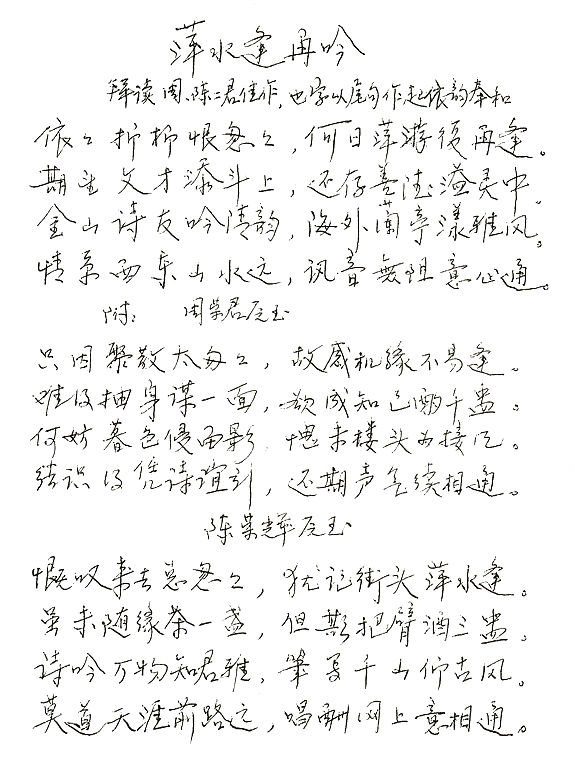 萍水逢再吟
拜读周、陈二君佳作，也学以尾句作起依韵奉和
依々折柳恨匆々，何日萍游复再逢。
期望文才添斗上，还存善法溢灵中。
金山诗友吟清韵，海外兰亭漾雅风。
情系西东山水远，讯音無阻意心通。
附：周荣君元玉
只因聚散太匆々，故感机缘不易逢。
唯收抽身谋一面，欲成知己酌千盅。
何妨暮色侵西影，愧未楼头为接风。
结识凭诗谊引，还期声气续相通。
陈荣辉元玉
恨叹来去总匆々，犹记街头萍水逢。
虽未随缘茶一盏，但期把臂酒三盅。
诗吟万物知君雅，笔写千山仰古风。
莫道天涯前路远，唱酬网上意相通。